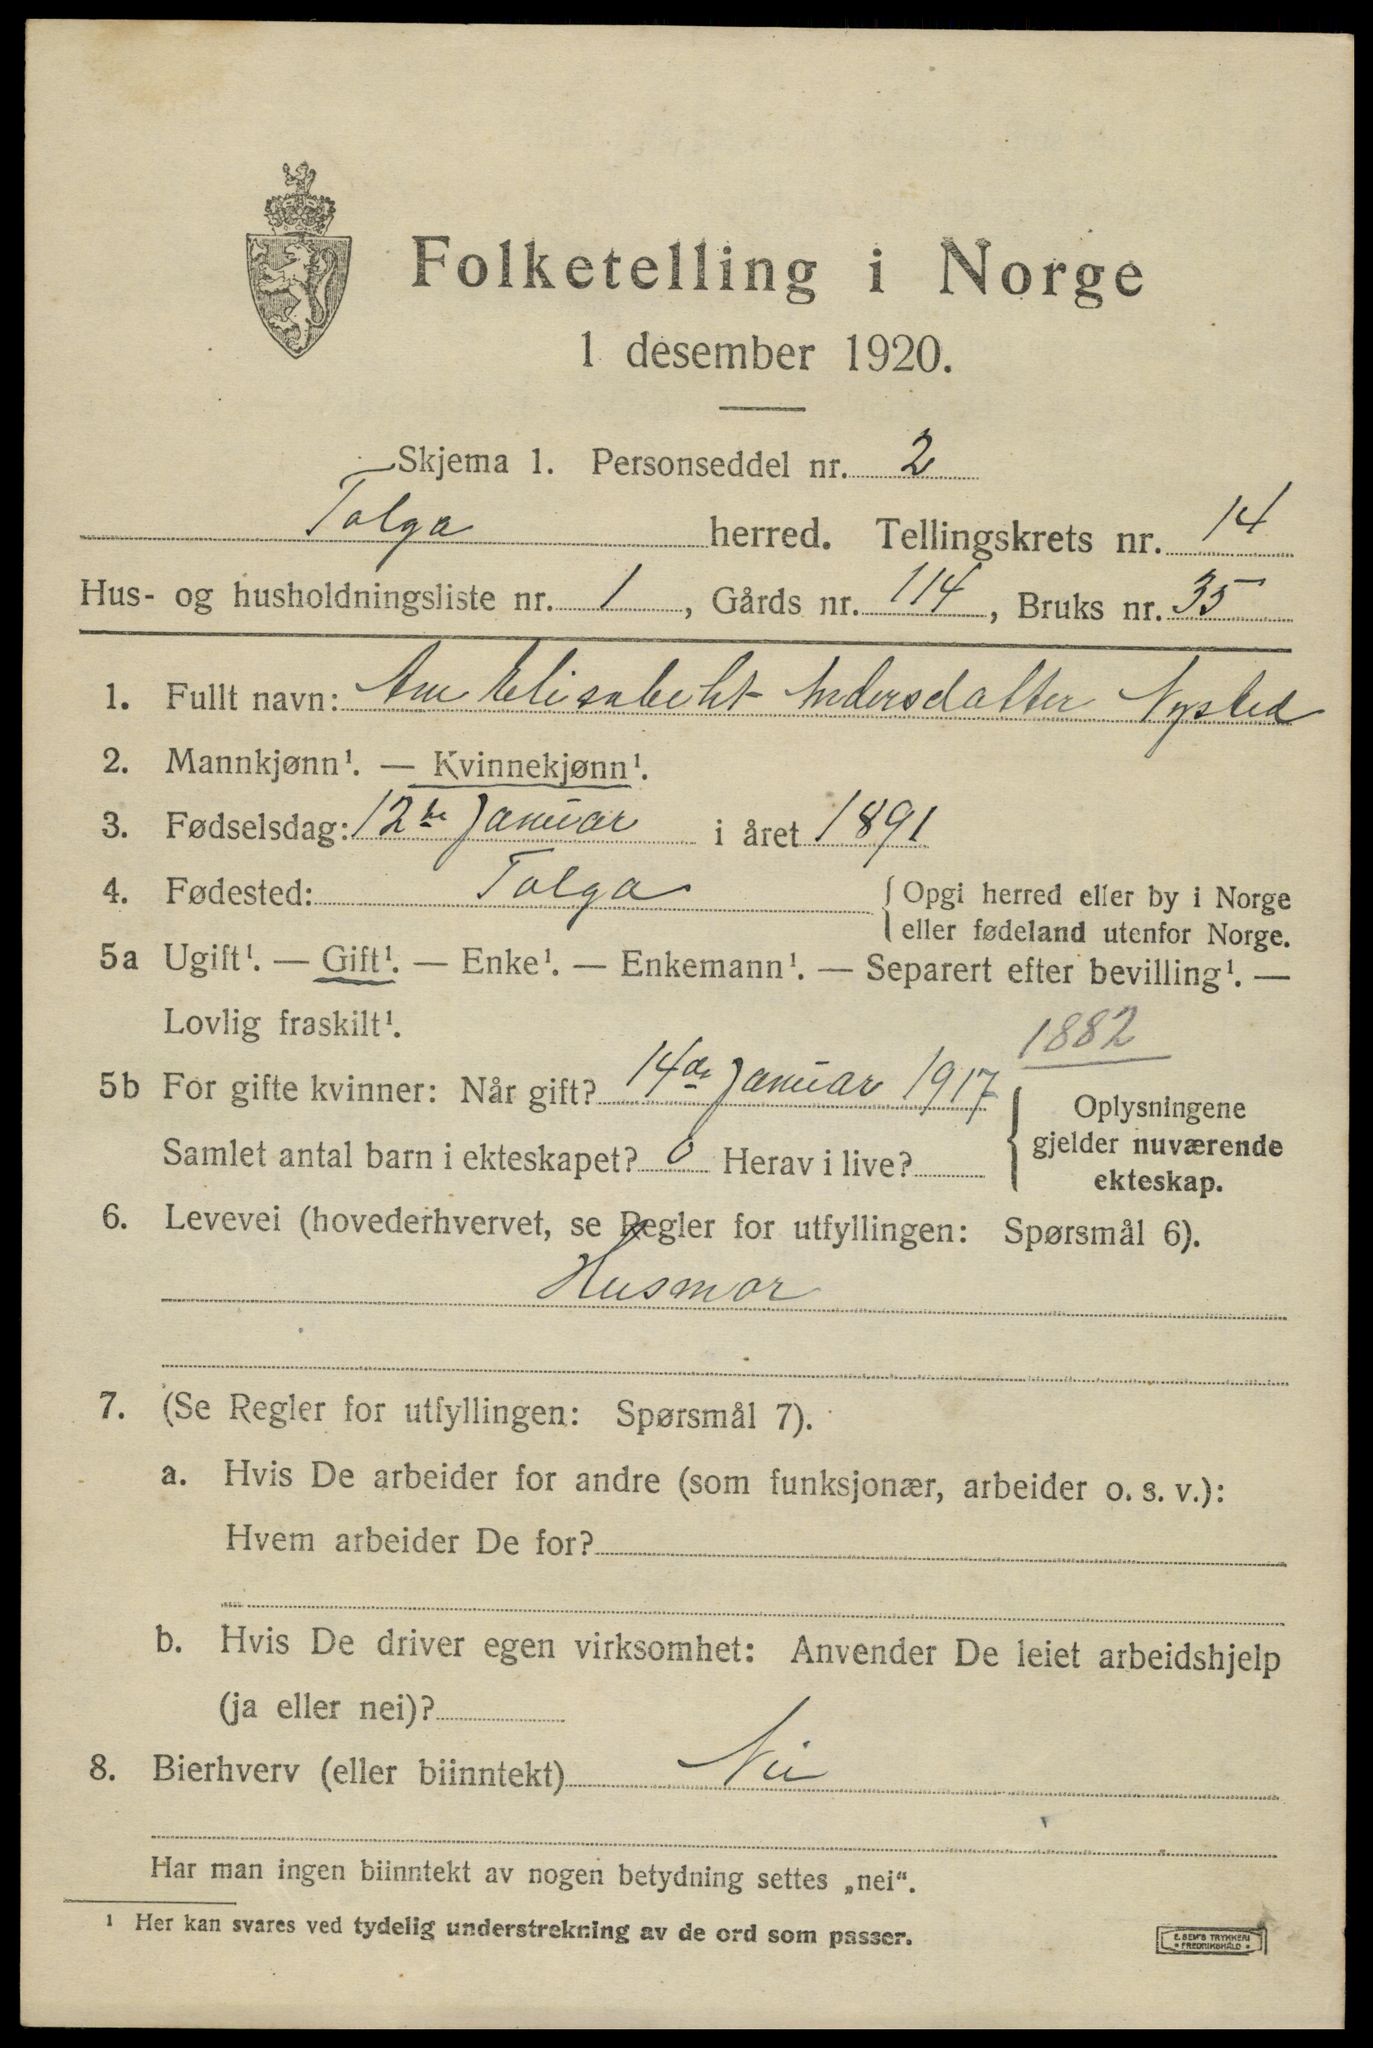 Folketelling i Norge
1 desember 1920.
Skjema 1. Personseddel nr. 2
Tolga herred. Tellingskrets nr. 14
Hus- og husholdningsliste nr. 1, Gårds nr. 114, Bruks nr. 35
1. Fullt navn: Ane Elisabeht Andersdatter Nysted
2. Mannkjønn¹. — Kvinnekjønn¹.
3. Fødselsdag: 12te Januar i året 1891
4. Fødested: Tolga { Opgi herred eller by i Norge
eller fødeland utenfor Norge.
5a Ugift¹. — Gift¹. — Enke¹. — Enkemann¹. — Separert efter bevilling¹. —
Lovlig fraskilt¹.
1882
5b For gifte kvinner: Når gift? 14de Januar 1917
Samlet antal barn i ekteskapet? 0 Herav i live?
{ Oplysningene
gjelder nuværende
ekteskap.
6. Levevei (hovederhvervet, se Regler for utfyllingen: Spørsmål 6).
Husmor
7. (Se Regler for utfyllingen: Spørsmål 7).
a. Hvis De arbeider for andre (som funksjonær, arbeider o. s. v.):
Hvem arbeider De for?
b. Hvis De driver egen virksomhet: Anvender De leiet arbeidshjelp
(ja eller nei)?
8. Bierhverv (eller biinntekt) Nei
Har man ingen biinntekt av nogen betydning settes „nei“.
¹ Her kan svares ved tydelig understrekning av de ord som passer.
E. SEM'S TRYKKERI
• FREDRIKSHALD •